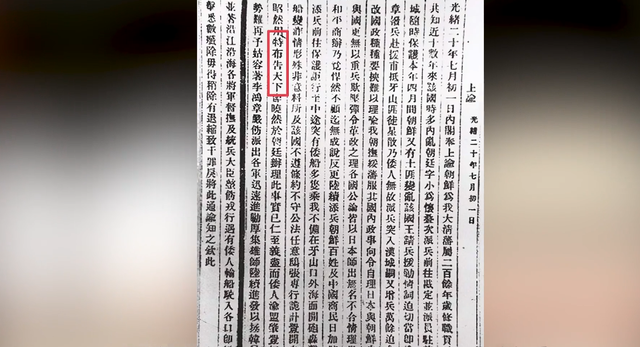 上諭 光緒二十年七月初一日
光緒二十年七月初一日內閣奉上諭朝鮮為我大清藩屬二百餘年歲修職貢
共知近十數年來該國時多內亂朝廷字小為懷疊次派兵前往戡定並派員駐
城隨時保護本年四月間朝鮮又有土匪變亂該國王請兵援剿情詞迫切當即
章撥兵赴援甫抵牙山匪徒星散乃倭人無故派兵突入漢城嗣又增兵萬餘迫
改國政種種要挾難以理喻我朝撫綏藩服其國內政事向令自理日本與朝鮮
與國更無以重兵欺壓強令革政之理各國公論皆以日本師出無名不合情理
和平商辦乃竟悍然不顧迄無成說反更陸續添兵朝鮮百姓及中國商民日加
添兵前往保護詎行至中途突有倭船多隻乘我不備在牙山口外海面開砲轟
船變詐情形殊非意料所及該國不遵條約不守公法任意鴟張專行詭計釁開
昭然用特布告天下俾曉然於朝廷辦理此事實已仁至義盡而倭人渝盟肇釁
勢難再予姑容著李鴻章嚴飭派出各軍迅速進剿厚集雄師陸續進發以拯韓
並著沿江沿海各將軍督撫及統兵大臣整飭戎行遇有倭人輪船駛入各口即
擊悉數殲除毋得稍有退縮致干罪戾將此通諭知之欽此